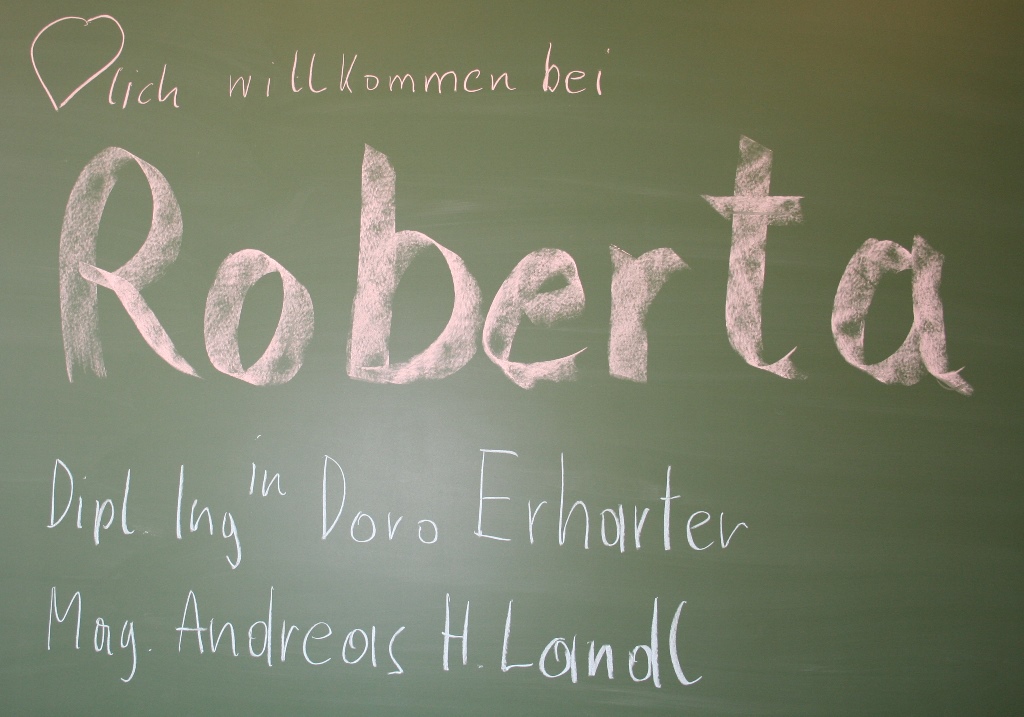 ♡lich willkommen bei
Roberta
Dipl. Ing in Doro Erharter
Mag. Andreas H. Landl